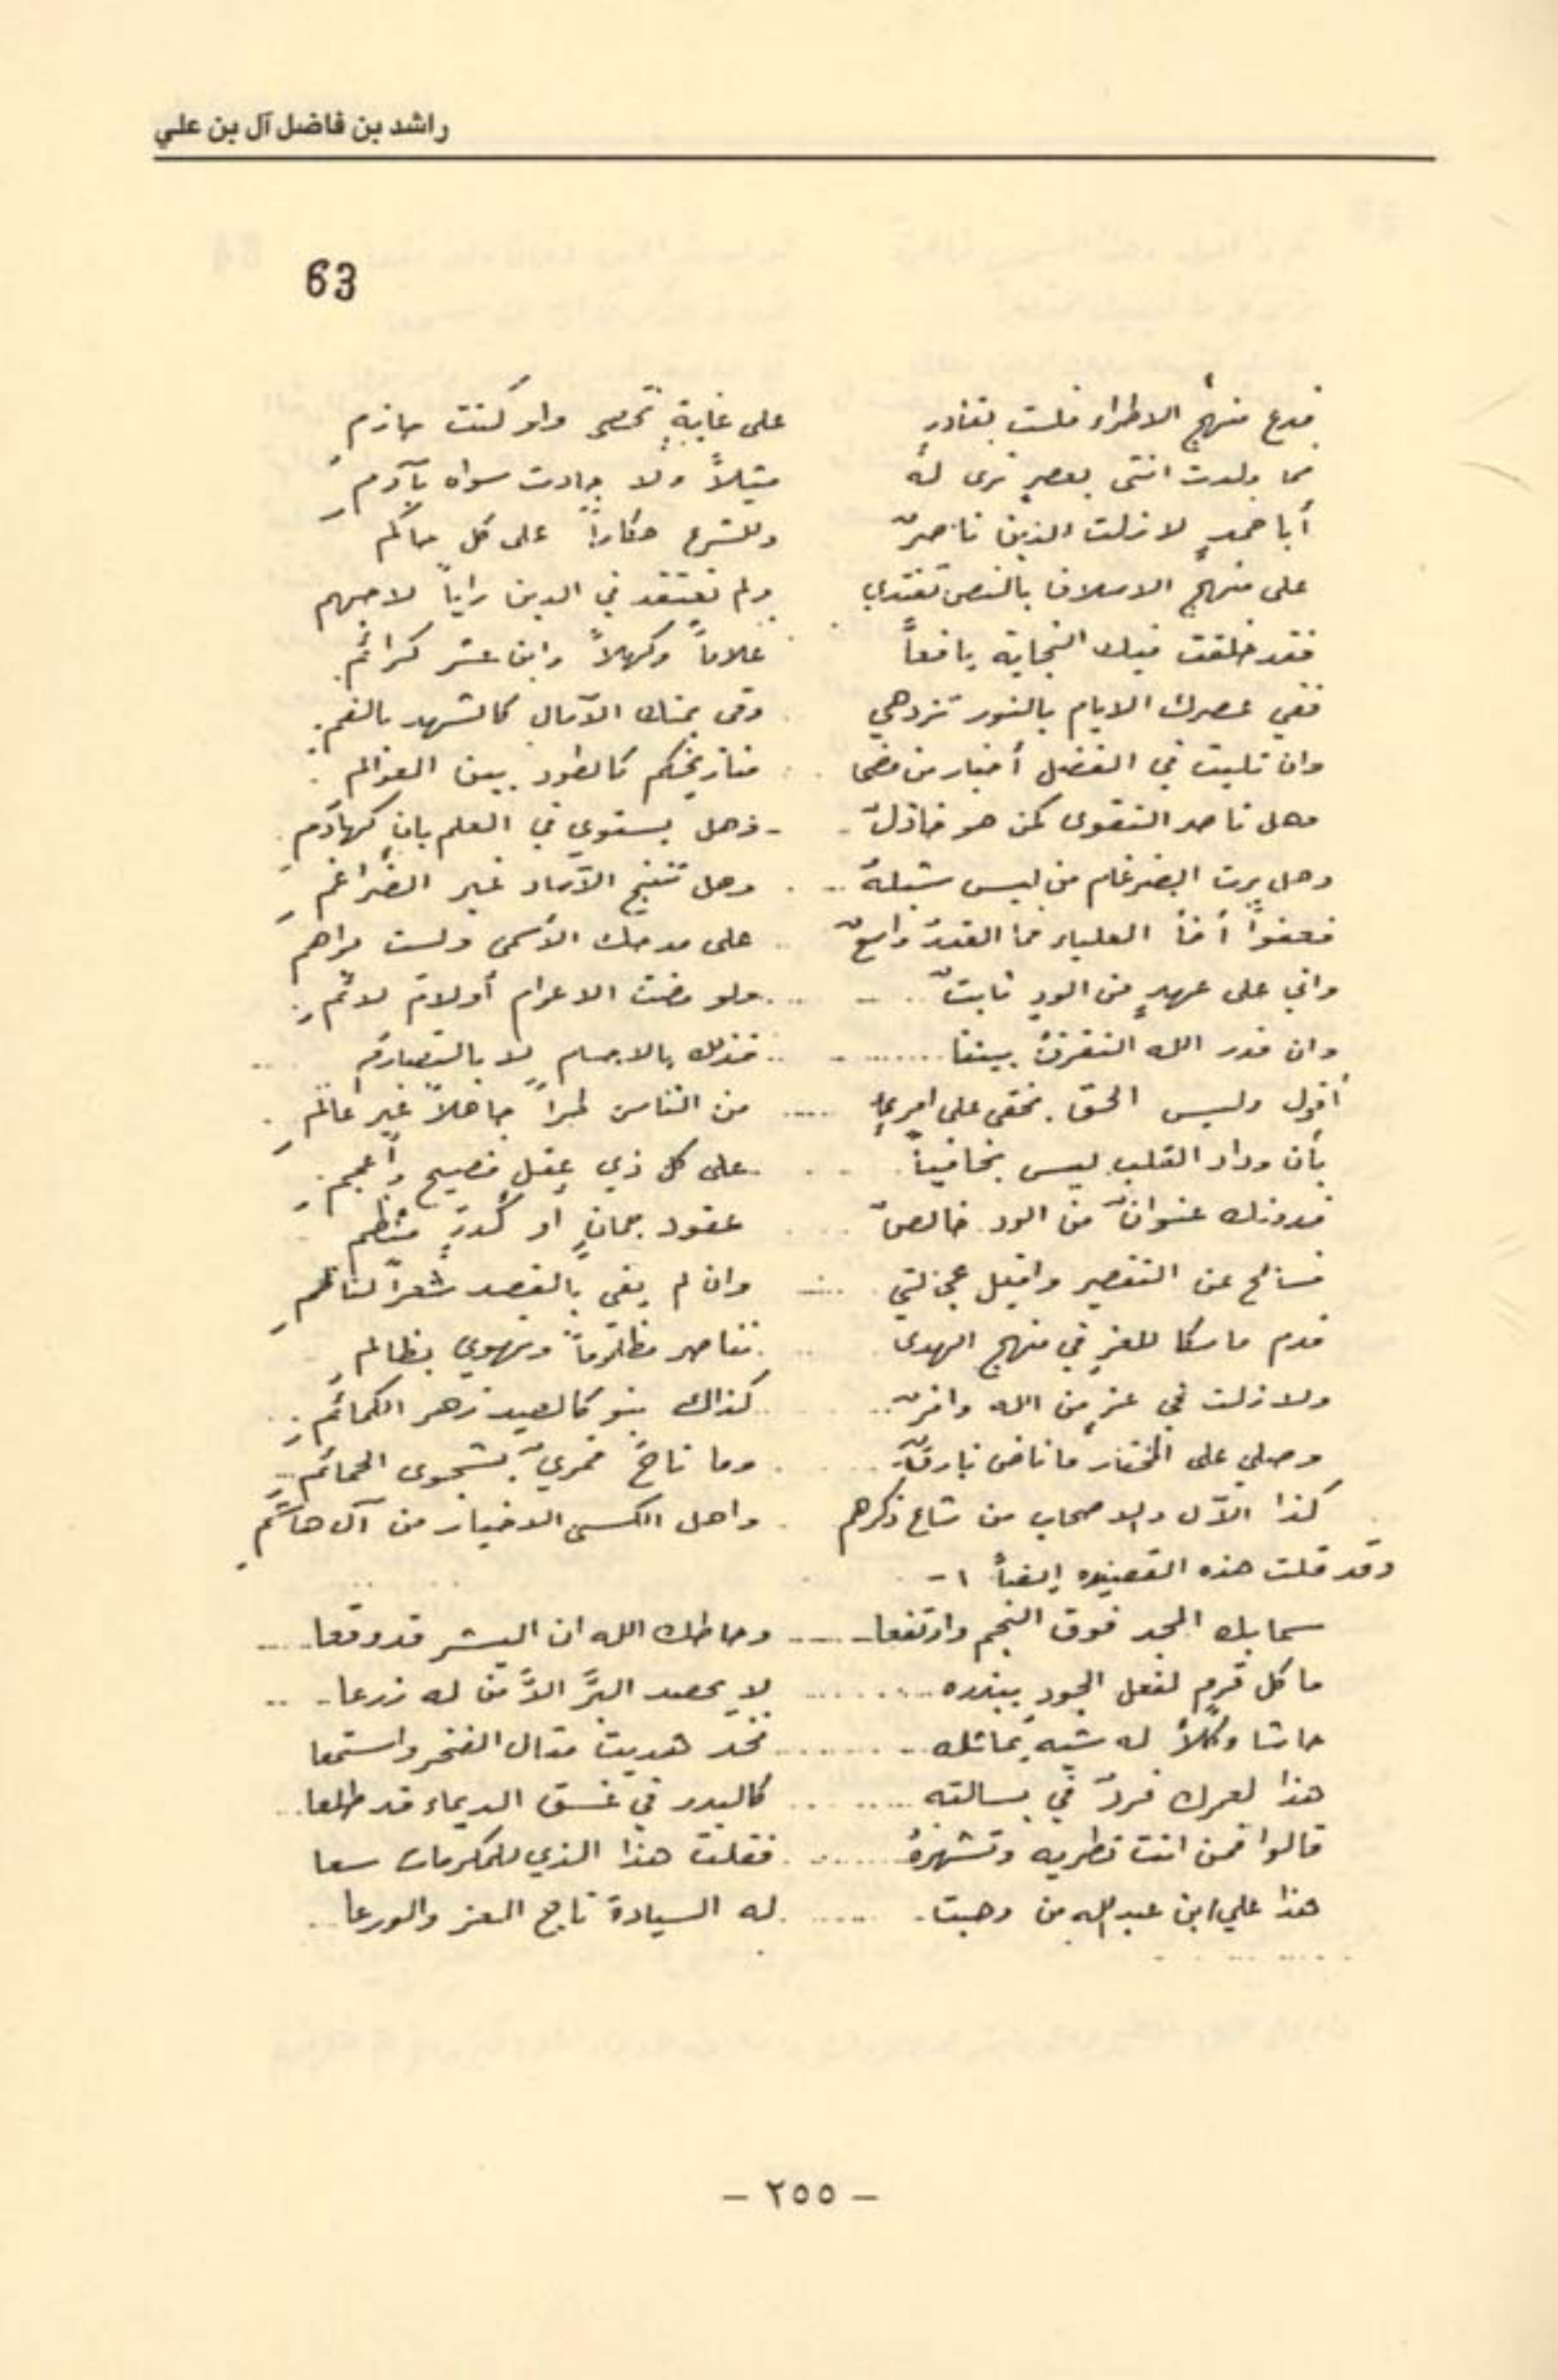 راشد بن فاضل آل بن علي
63
فدع منهج الاطراء فلست بقادرٍ على غايةٍ تحصى ولو كنت حازمِ
فما ولدت انثى بعصرٍ ترى لهُ مثيلاً ولا جادت سواه بآدمِ
أبا حمدٍ لا زلت للدين ناصرٌ وللشرع حكاراً على كل حاكم
على منهج الاسلاف بالنص تقتدي ولم تعتقد في الدين راياً لاجهم
فقد خلقت فيك النجابة يافعاً غلاماً وكهلاً وابن عشر كرائم
ففي عصرك الايام بالنور تزدهي وفى يمنك الآمال كالشهد بالفم
وان تليت في الفضل أخبار من مضى فتاريخكم كالطود بين العوالم
وهل ناصر التقوى كمن هو خاذلٌ وهل يستوي في العلم بانٍ كهادمِ
وهل يرث الضرغام من ليس شبلهُ وهل تنتج الآساد غير الضراغمِ
فعفواً أخا العلياء فما القدرُ واسعٌ على مدحك الأسمى ولست براهم
واني على عهدٍ من الودِ ثابتٌ ولو مضت الاعوام أو لام لائمِ
وان قدر الله التفرقُ بيننا فذلك بالاجسام لا بالتصادم
أقول وليس الحق يخفى على امرئٍ من الناس طراً جاهلاً غير عالمِ
بأن وداد القلب ليس بخافياً على كل ذي عقلٍ فصيح وأعجمِ
فدونك عنوانٌ من الود خالصٌ عقود جمانٍ او كدرٍ منظم
فسامح عن التقصير واقبل عجالتي وان لم يفي بالقصد شعراً لناظمِ
فدم ماسكا للعزِ في منهج الهدى تناصر مظلوماً وتهوي بظالمِ
ولا زلت في عزٍ من الله وافرٌ كذاك بنو كالصيد زهر الكمائمِ
وصلي على المختار ما ناض بارقٌ وما ناحَ قمريٌ بشجوى الحمائمِ
كذا الآل والاصحاب من شاع ذكرهم واهل الكسى الاخيار من آل هاشمِ
وقد قلت هذه القصيده ايضاً ١-
سما بك المجد فوق النجم وارتفعا وحاطك الله ان البشر قد وقعا
ما كل قرمٍ لفعل الجود يبذره لا يحصد البرَّ الاَّ من له زرعا
حاشا وكلاَّ له شبه يماثله فخذ هديت مقال الفخر واستمعا
هذا لعمرك فردٌ في بسالته كالبدر في غسق الديماء قد طلعا
قالوا فمن انت تطريه وتشهرهُ فقلت هذا الذي للمكرمات سعا
هذا علي ابن عبدالله من وهبت له السيادة تاج العز والورعا
- ٢٥٥ -